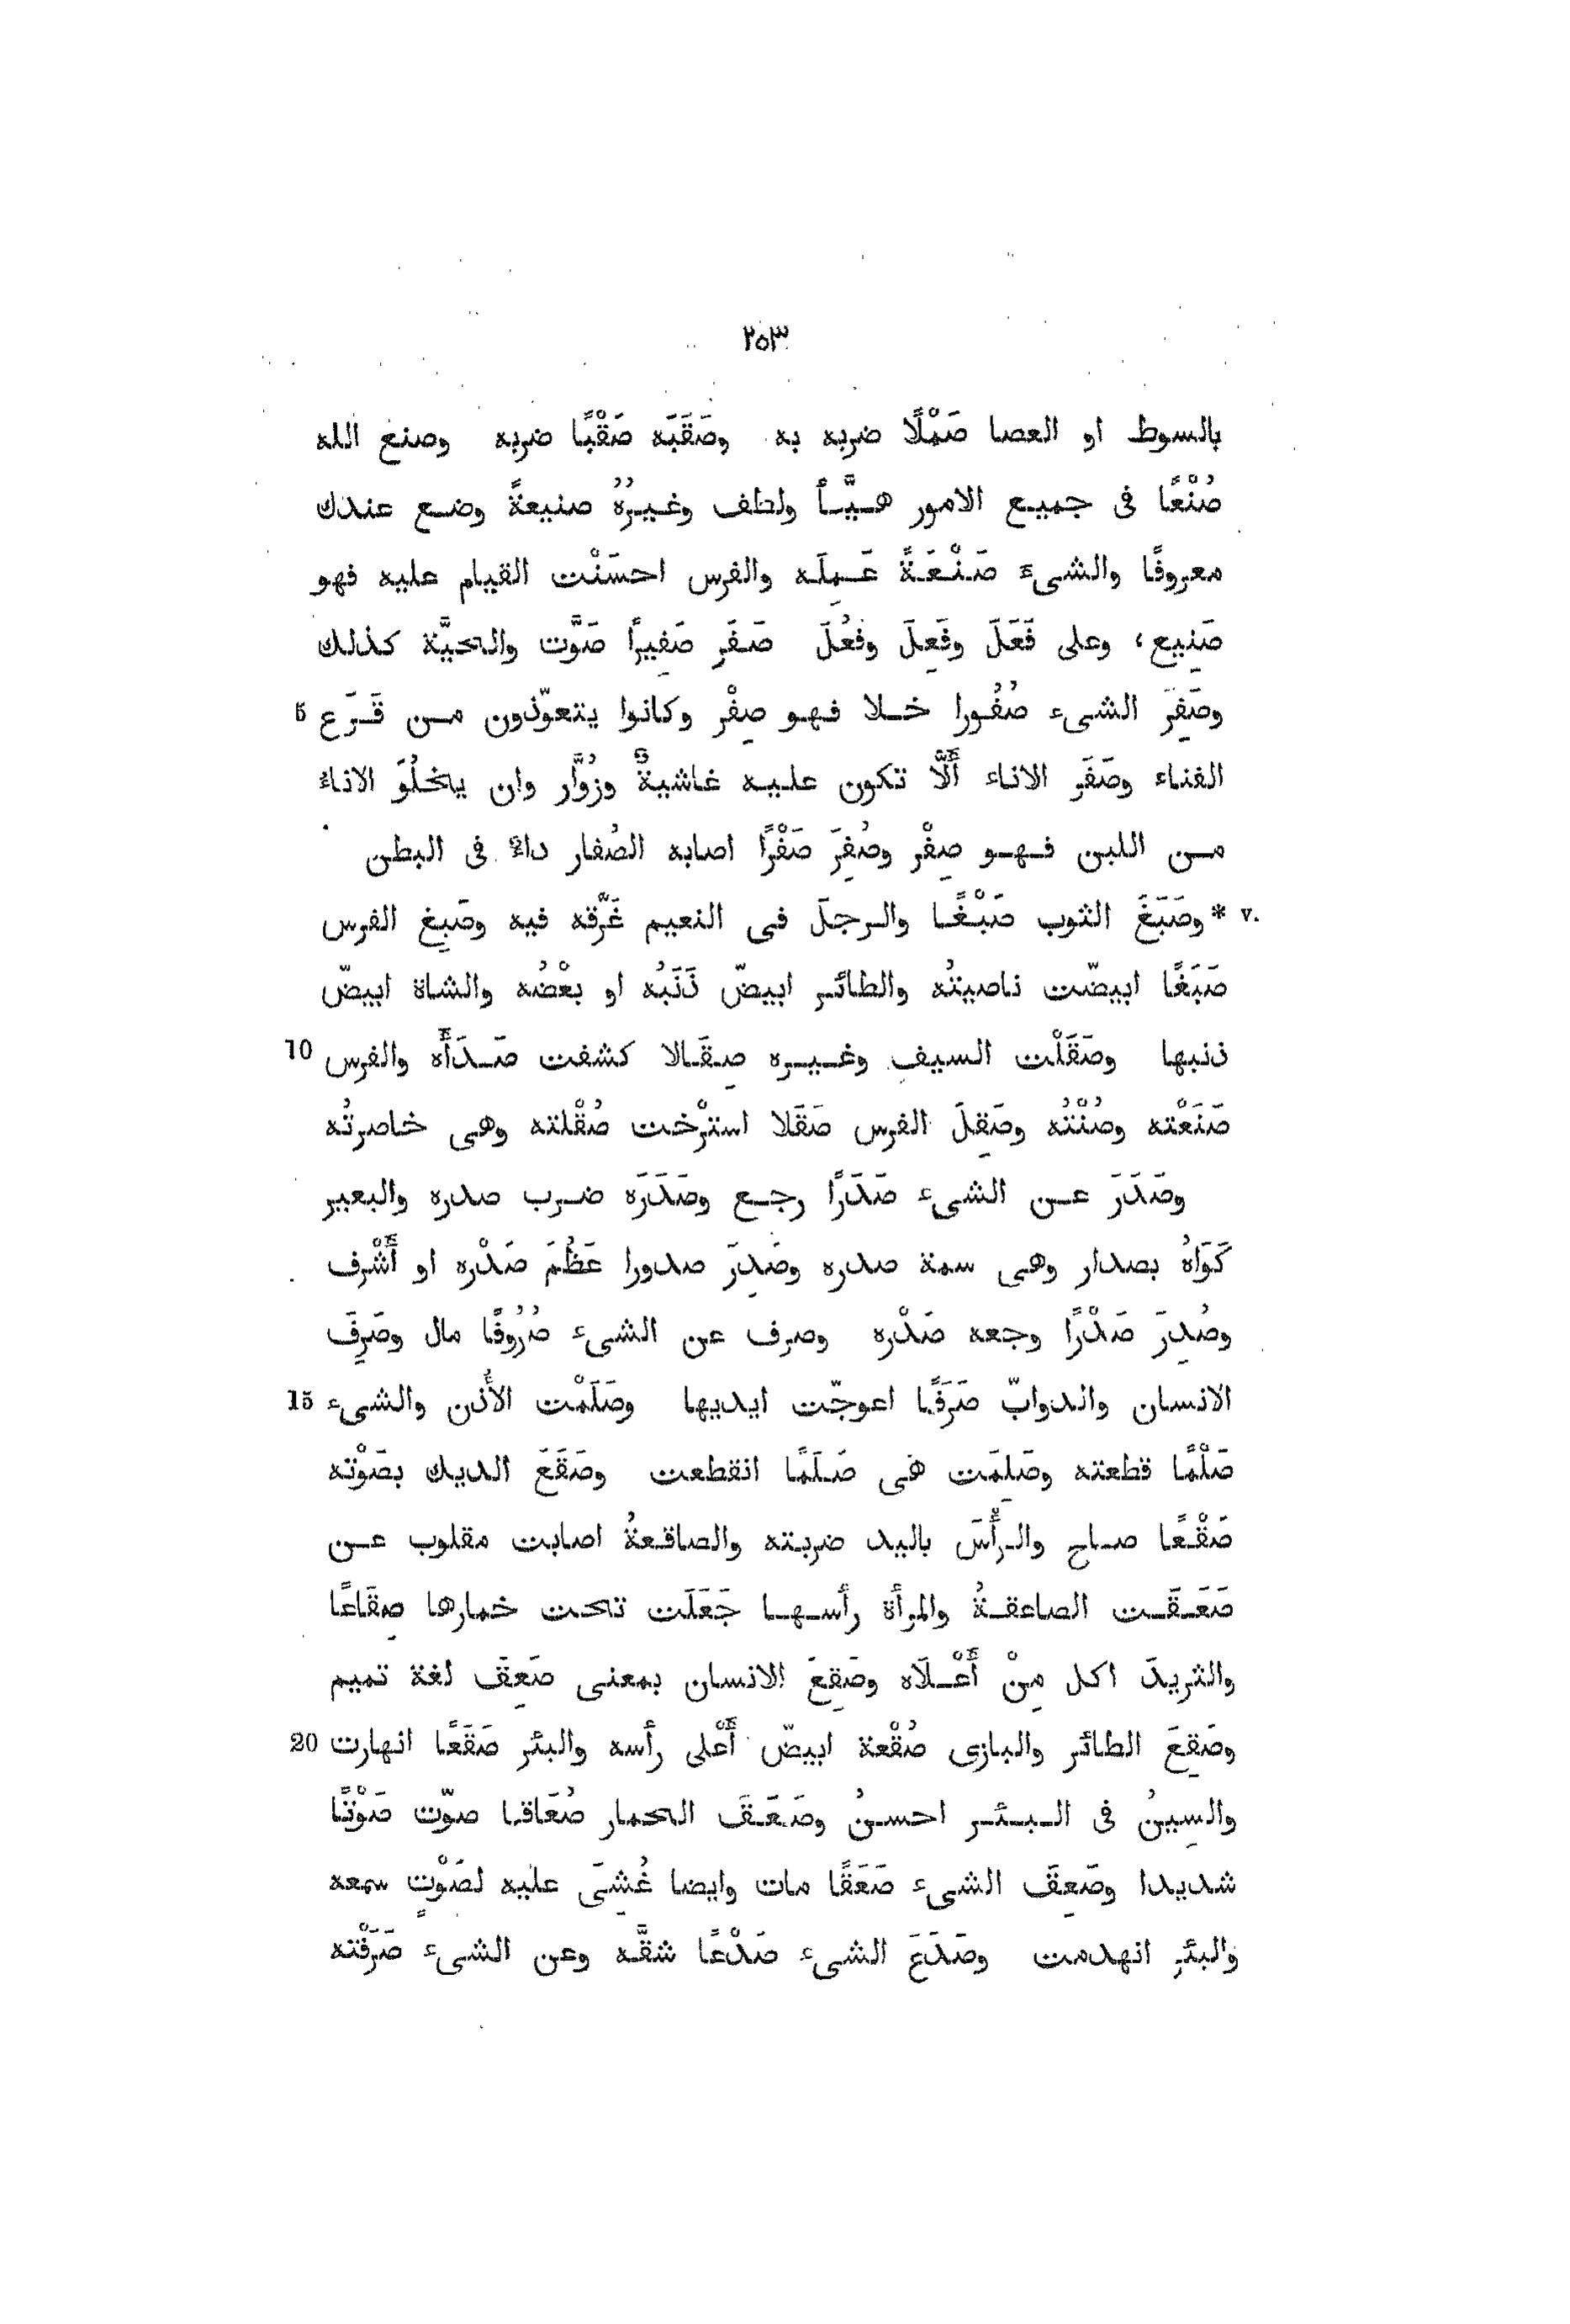 ٢٥٣
بالسوط او العصا صَمْلًا ضربه به وصَقَبَه صَقْبًا ضربه وصنع الله
صُنْعًا فى جميع الامور هيَّأ ولطف وغيرُهُ صنيعةً وضع عندك
معروفًا والشىء صَنْعَةً عَمِلَه والفرس احسَنْت القيام عليه فهو
صَنِيع، وعلى فَعَلَ وفَعِلَ وفعُلَ صَفَر صَفِيرًا صَوَّت والحيَّة كذلك
وصَفِرَ الشىء صُفُورا خلا فهو صِفْر وكانوا يتعوّذون من قَرَع 5
الفناء وصَفَر الاناء أَلَّا تكون عليه غاشيةٌ وزُوَّار وان يخلُوَ الاناءُ
من اللبن فهو صِفْر وصُفِرَ صَفْرًا اصابه الصُفار داءٌ فى البطن
٧٠ * وصَبَغَ الثوب صَبْغًا والرجلَ فى النعيم غَرَّقه فيه وصَبِغ الفرس
صَبَغًا ابيضّت ناصيتُه والطائر ابيضّ ذَنَبُه او بعْضُه والشاة ابيضّ
ذنبها وصَقَلْت السيف وغيره صِقَالا كشفت صَدَأَه والفرس 10
صَنَعْته وصُنْتُه وصَقِلَ الفرس صَقَلا استرْخت صُقْلته وهى خاصرتُه
وصَدَرَ عن الشىء صَدَرًا رجع وصَدَرَه ضرب صدره والبعير
كَوَاهُ بصدار وهى سمة صدره وصَدِرَ صدورا عَظُمَ صَدْره او أَشْرف
وصُدِرَ صَدْرًا وجعه صَدْره وصرف عن الشىء صُرُوفًا مال وصَرِفَ
الانسان والدوابّ صَرَفًا اعوجّت ايديها وصَلَمْت الأُذن والشىء 15
صَلْمًا قطعته وصَلِمَت هى صَلَمًا انقطعت وصَقَعَ الديك بصَوْته
صَقْعًا صاح والرأْسَ باليد ضربته والصاقعةُ اصابت مقلوب عن
صَعَقَت الصاعقةُ والمرأة رأسها جَعَلَت تحت خمارها صِقَاعًا
والثريدَ اكل مِنْ أَعْلَاه وصَقِعَ الانسان بمعنى صَعِقَ لغة تميم
وصَقِعَ الطائر والبازى صُقْعة ابيضّ أَعْلى رأسه والبئر صَقَعًا انهارت 20
والسِينُ فى البئر احسنُ وصَعَقَ الحمار صُعَاقا صوّت صَوْتًا
شديدا وصَعِقَ الشىء صَعَقًا مات وايضا غُشِىَ عليه لصَوْتٍ سمعه
والبئرِ انهدمت وصَدَعَ الشىء صَدْعًا شقَّه وعن الشىء صَرَفْته